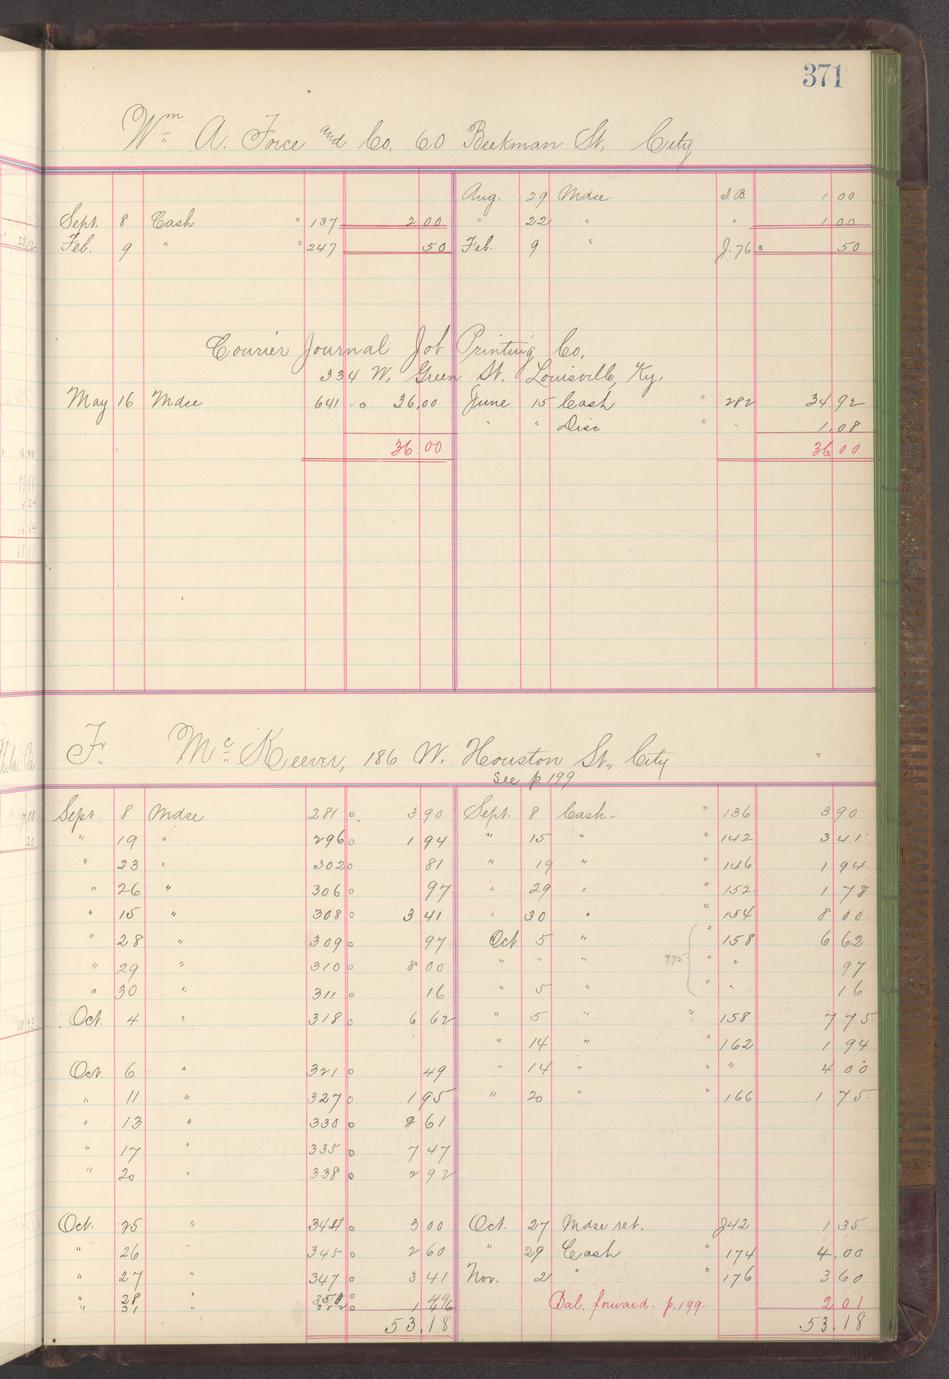 371
Wm A. Force and Co. 60 Beekman St. City
Aug. 29 Mdse I B 1 00
Sept. 8 Cash " 137 2 00 " 22 " " 1 00
Feb. 9 " " 247 50 Feb. 9 " J. 76 50
Courier Journal Job Printing Co.
334 W. Green St. Louisville, Ky.
May 16 Mdse 641 36,00 June 15 Cash " 282 34.92
" " Disc " " 1.08
36 00 36 00
F. Mc Keever, 186 W. Houston St., City
See p 199
Sept. 8 Mdse 281 3 90 Sept. 8 Cash " 136 3 90
" 19 " 296 1 94 " 15 " " 142 3 41
" 23 " 302 81 " 19 " " 146 1 94
" 26 " 306 97 " 29 " " 152 1 78
" 15 " 308 3 41 " 30 " " 154 8 00
" 28 " 309 97 Oct 5 " " 158 6 62
" 29 " 310 8 00 " " " 775 " " 97
" 30 " 311 16 " 5 " " " 16
Oct. 4 " 318 6 62 " 5 " " 158 7 75
" 14 " " 162 1 94
Oct. 6 " 321 49 " 14 " " " 4 00
" 11 " 327 1 95 " 20 " " 166 1 75
" 13 " 330 2 61
" 17 " 335 7 47
" 20 " 338 2 92
Oct. 25 " 344 3 00 Oct. 27 Mdse ret. J42 1 35
" 26 " 345 2 60 " 29 Cash " 174 4.00
" 27 " 347 3 41 Nov. 2 " " 176 3 60
" 28 " 350 49
" 31 " 1 46 Bal. forward. p. 199. 2 01
53.18 53.18